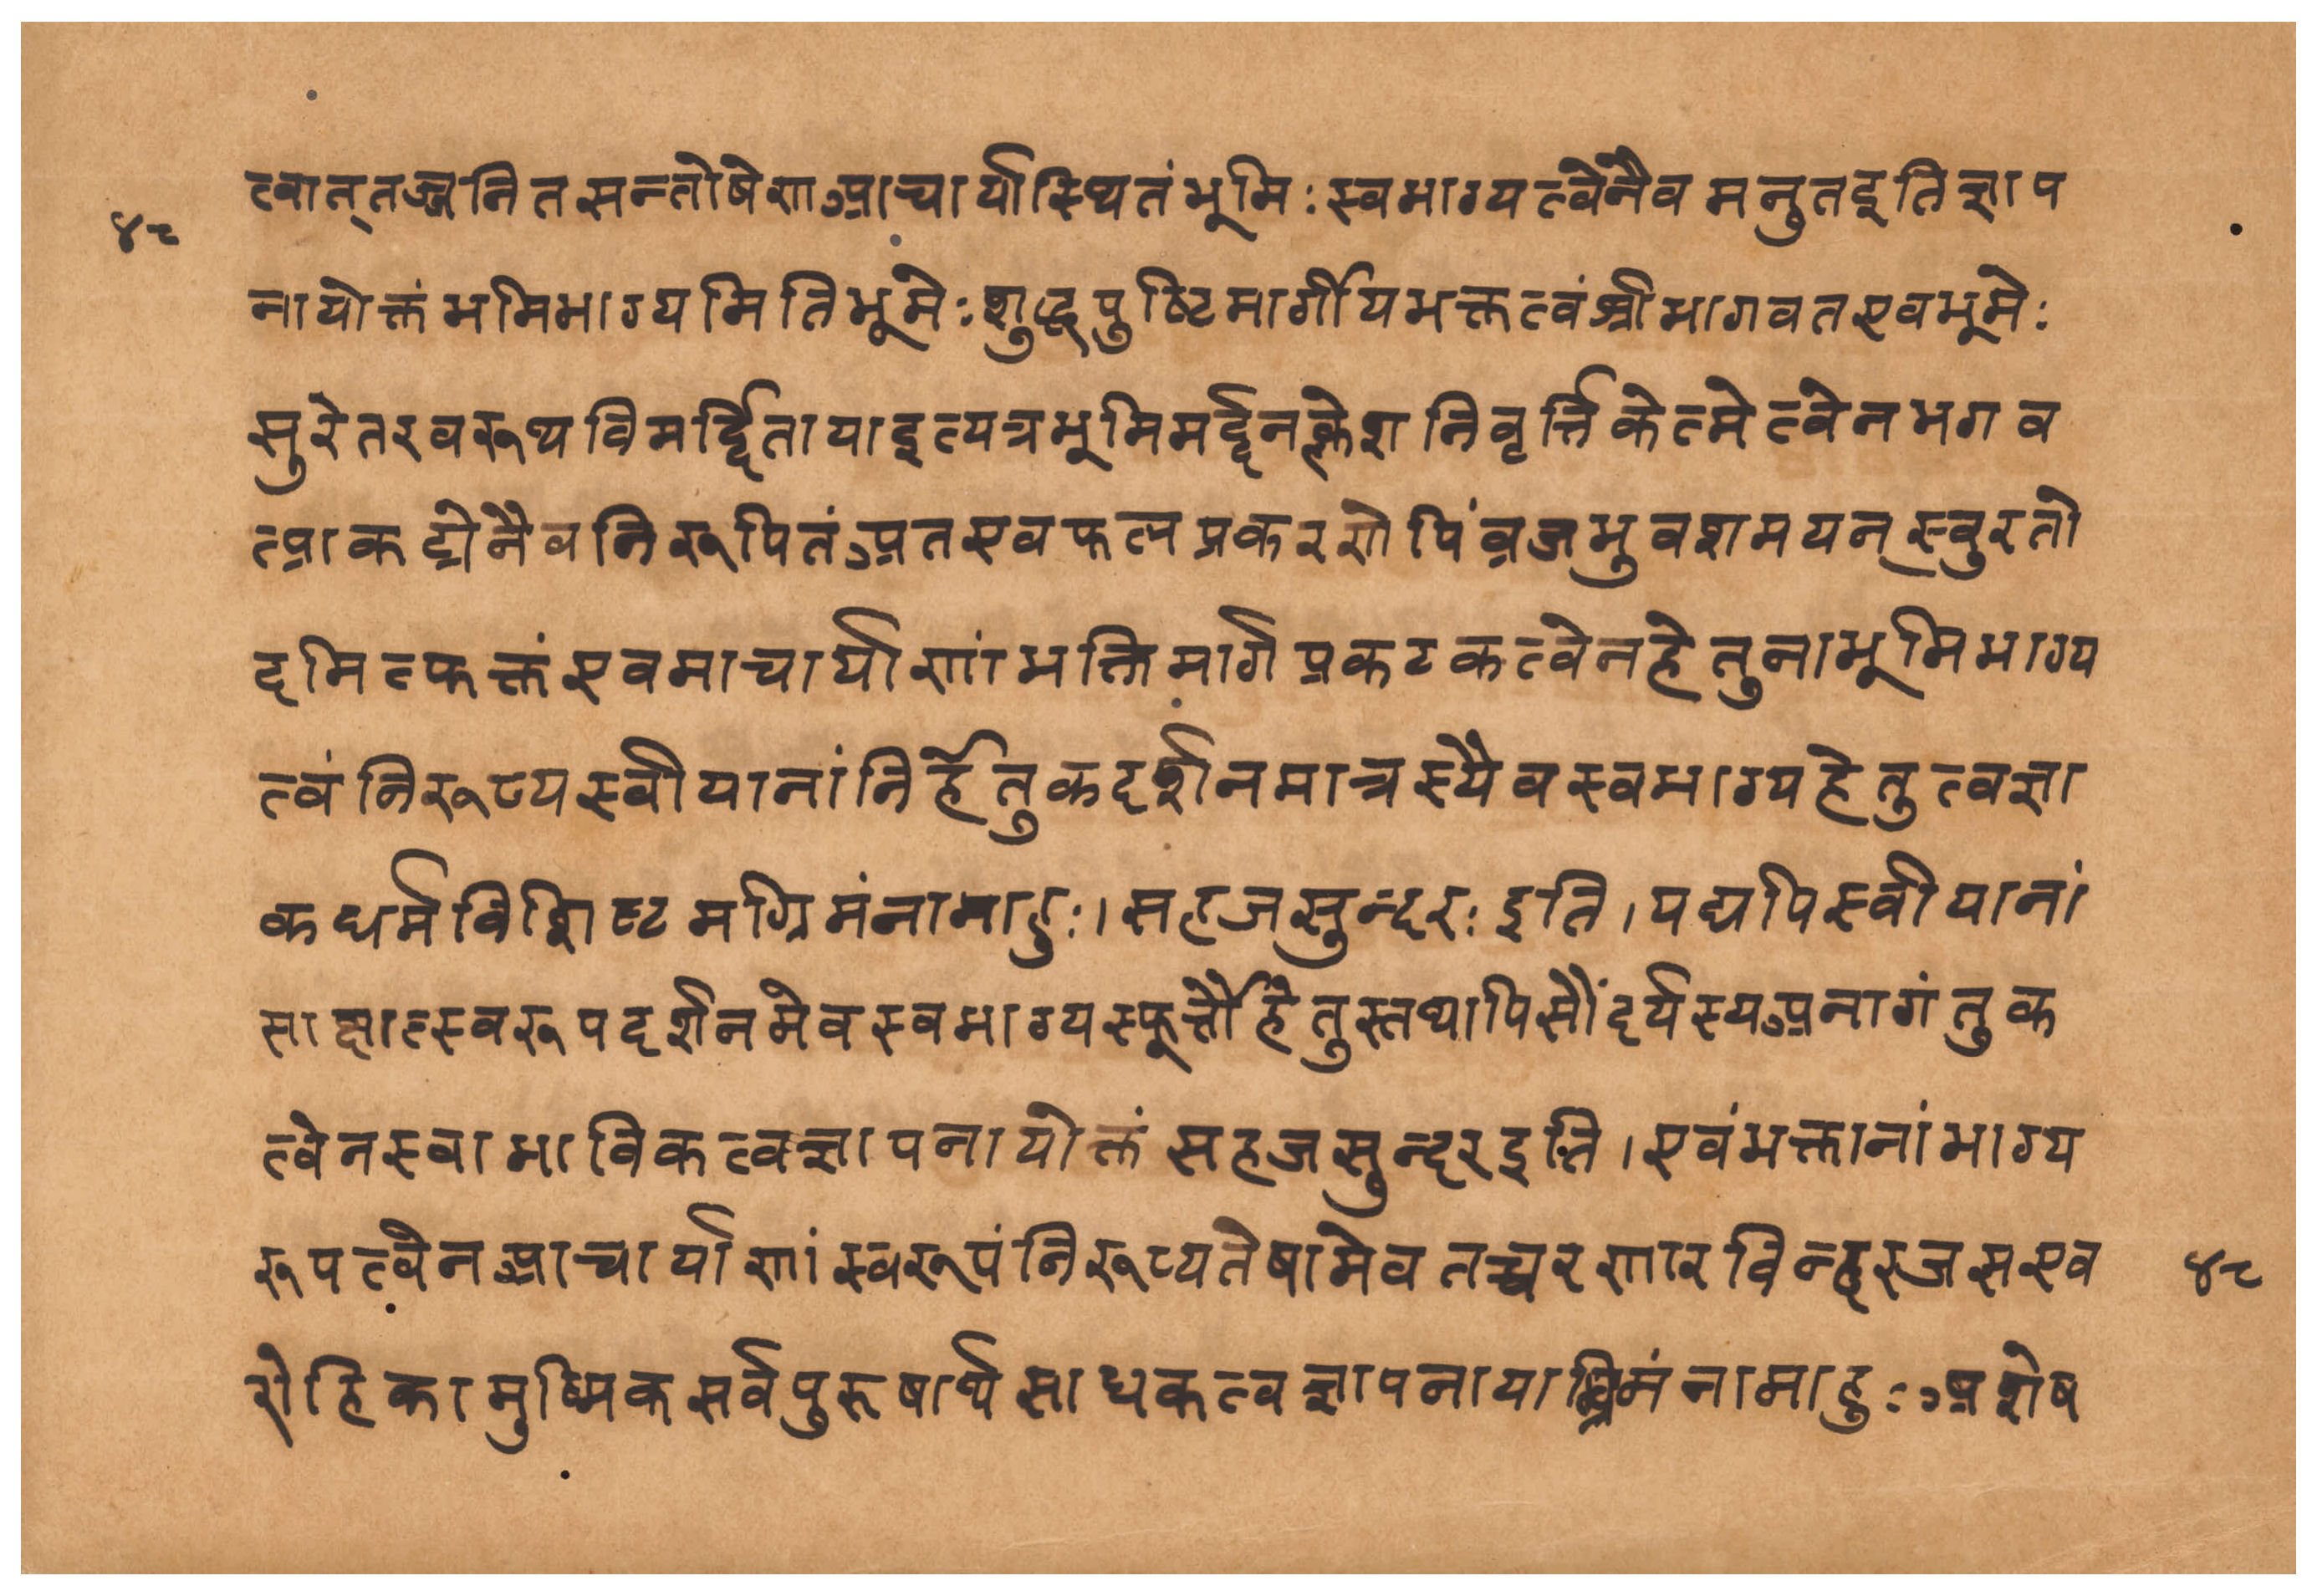 त्वात्तज्जनितसन्तोषेणआचार्यास्थितंभूमिःस्वभाग्यत्वेनैवमनुतइतिज्ञाप
४८
नायोक्तंभमिभाग्यमितिभूमेःशुद्धपुष्टिमार्गीयभक्तत्वंश्रीभागवतएवभूमेः
सुरेतरवरूथविमर्द्दितायाइत्यत्रभूमिमर्द्दनक्लेशनिवृर्त्तिकेत्मेत्वेनभगव
त्प्राकट्येनैवनिरूपितंअतएवफलप्रकरणेपिंव्रजभुवशमयन्स्वुरतो
दमित्फक्तंएवमाचार्याणांभक्तिमार्गप्रकटकत्वेनहेतुनाभूमिभाग्य
त्वंनिरूप्यस्वीयानांनिर्हेतुकदर्शनमात्रस्यैवस्वभाग्यहेतुत्वज्ञा
कधर्मविशिष्टमग्रिमंनामाहुः।सहजसुन्दरःइति।यद्यपिस्वीयानां
साक्षात्स्वरूपदर्शनमेवस्वभाग्यस्फूर्त्तौहेतुस्तथापिसौंदर्यस्यअनागंतुक
त्वेनस्वाभाविकत्वज्ञापनायोक्तं सहजसुन्दरइति।एवंभक्तानांभाग्य
रूपत्वेनआचार्याणांस्वरूपंनिरूप्यतेषामेवतच्चरणारविन्दरजसएव
४८
रोहिकामुष्मिकसर्वपुरुषार्थसाधकत्वज्ञापनायाग्रिमंनामाहुःअशेष